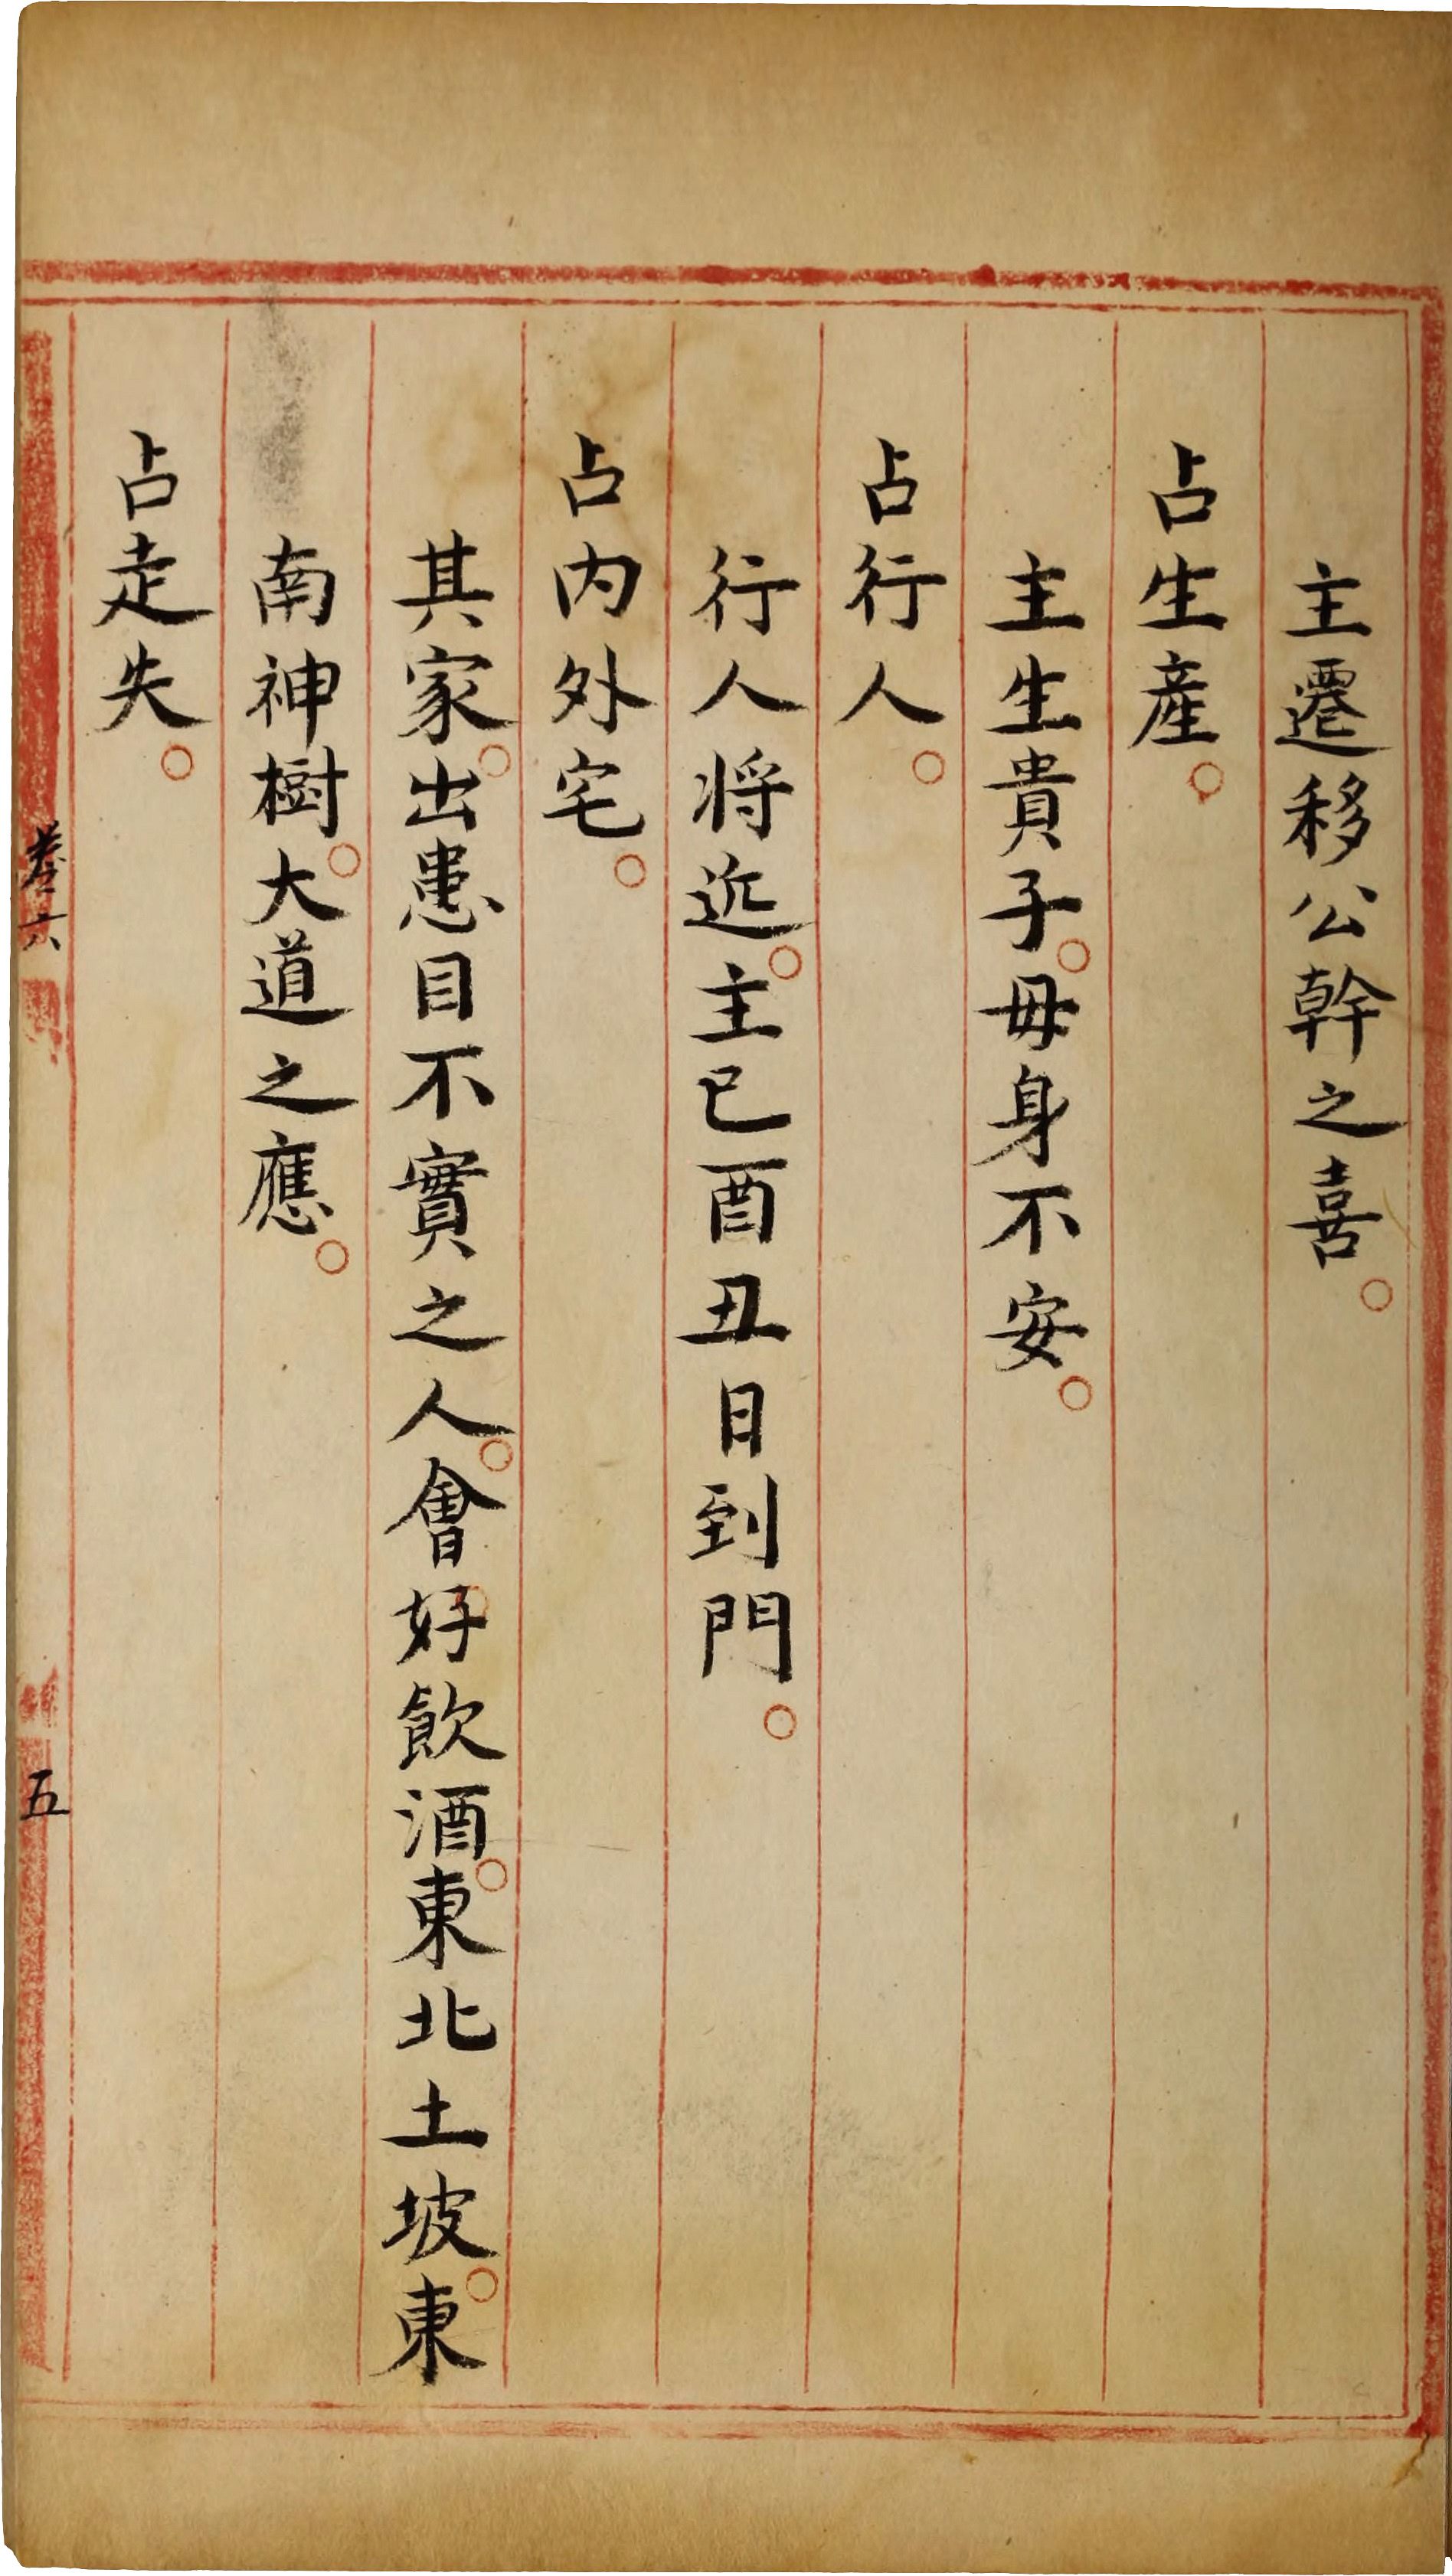 主遷移公幹之喜。
占生產。
主生貴子。母身不安。
占行人。
行人将近。主巳酉丑日到門。
占内外宅。
其家。出患目不實之人。會好飲酒。東北土坡。東
南神樹。大道之應。
占走失。
卷六
五